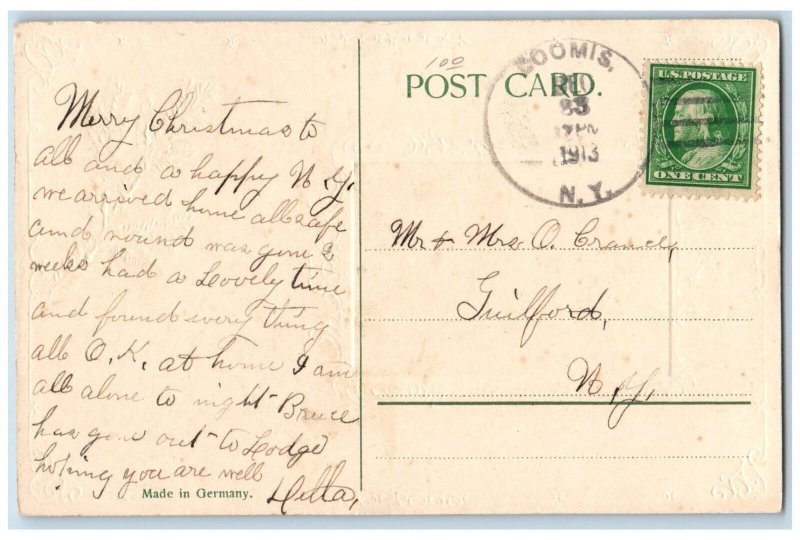 100
POST CARD.
LOOMIS,
23
1913
N. Y.
U.S. POSTAGE
ONE CENT
Merry Christmas to
all and a happy N. Y.
we arrived home all safe
and round was gone 2
weeks had a Lovely time
and found every thing
all O. K. at home I am
all alone to night Bruce
has gone out to Lodge
hoping you are well
Della,
Made in Germany.
Mr & Mrs O. Crance,
Guilford,
N. Y.